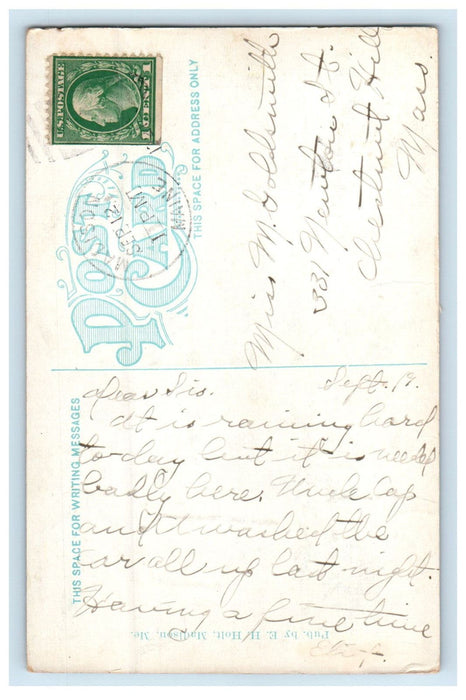 U.S. POSTAGE
1 CENT 1
MADISON
SEP 13
1 PM
MAINE
POST CARD
THIS SPACE FOR ADDRESS ONLY
Miss M. Goldsmith
331 Newton St.
Chestnut Hill
Mass.
THIS SPACE FOR WRITING MESSAGES
Sept. 19.
Dear Sis.
It is raining hard
to-day but it is needed
badly here. Uncle Cap
and I washed the
car all up last night.
Having a fine time
Pub. by E. H. Holt, Madison, Me.